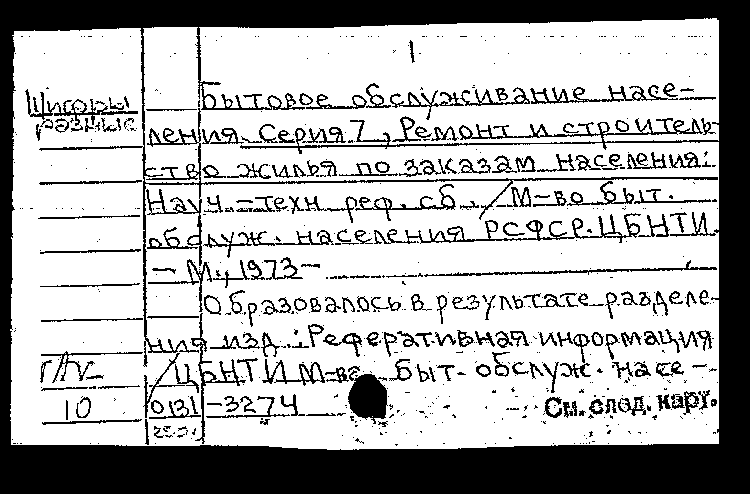 1
Шифры
разные
Бытовое обслуживание насе-
ления. Серия 7, Ремонт и строитель-
ство жилья по заказам населения:
Науч.-техн. реф. сб. / М-во быт.
обслуж. населения РСФСР. ЦБНТИ.
- М., 1973-
Образовалось в результате разделе-
ния изд.: Реферативная информация
/ ЦБНТИ М-ва быт. обслуж. насе-
10
0131-3274
См. след. карт.